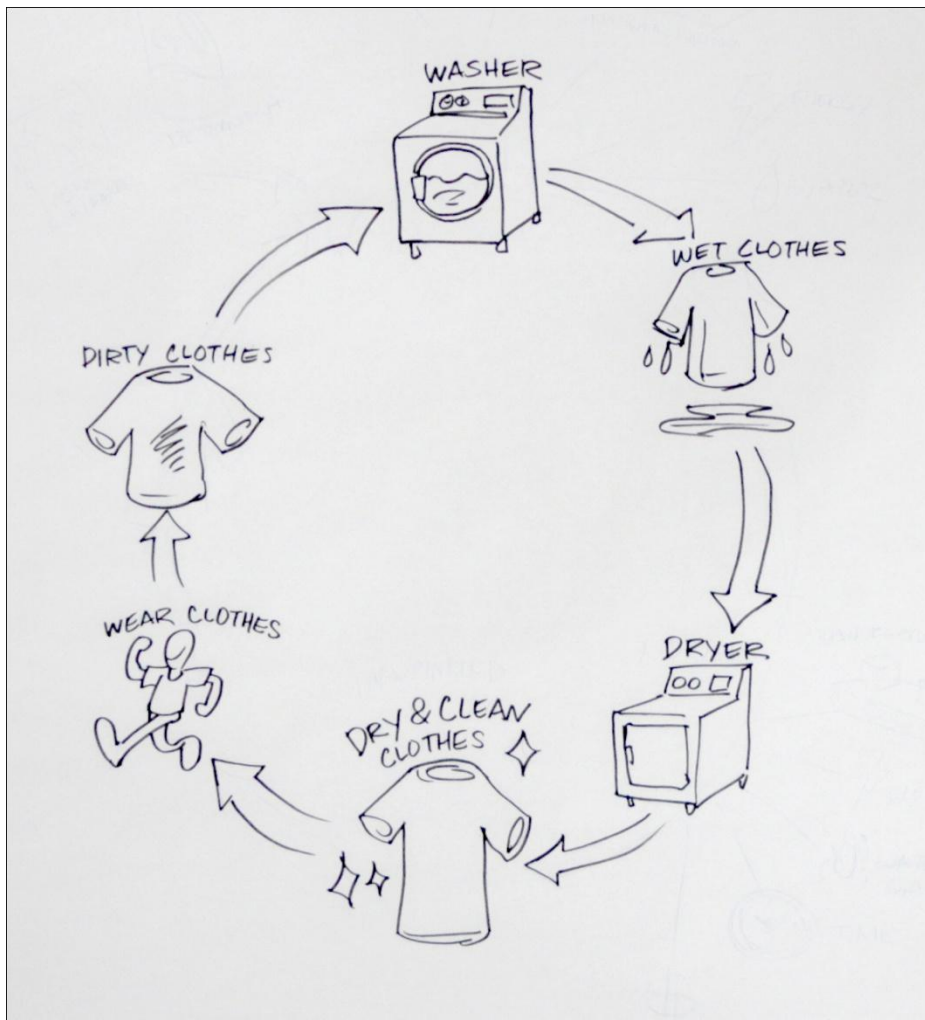 WASHER
WET CLOTHES
DRYER
DRY & CLEAN
CLOTHES
WEAR CLOTHES
DIRTY CLOTHES